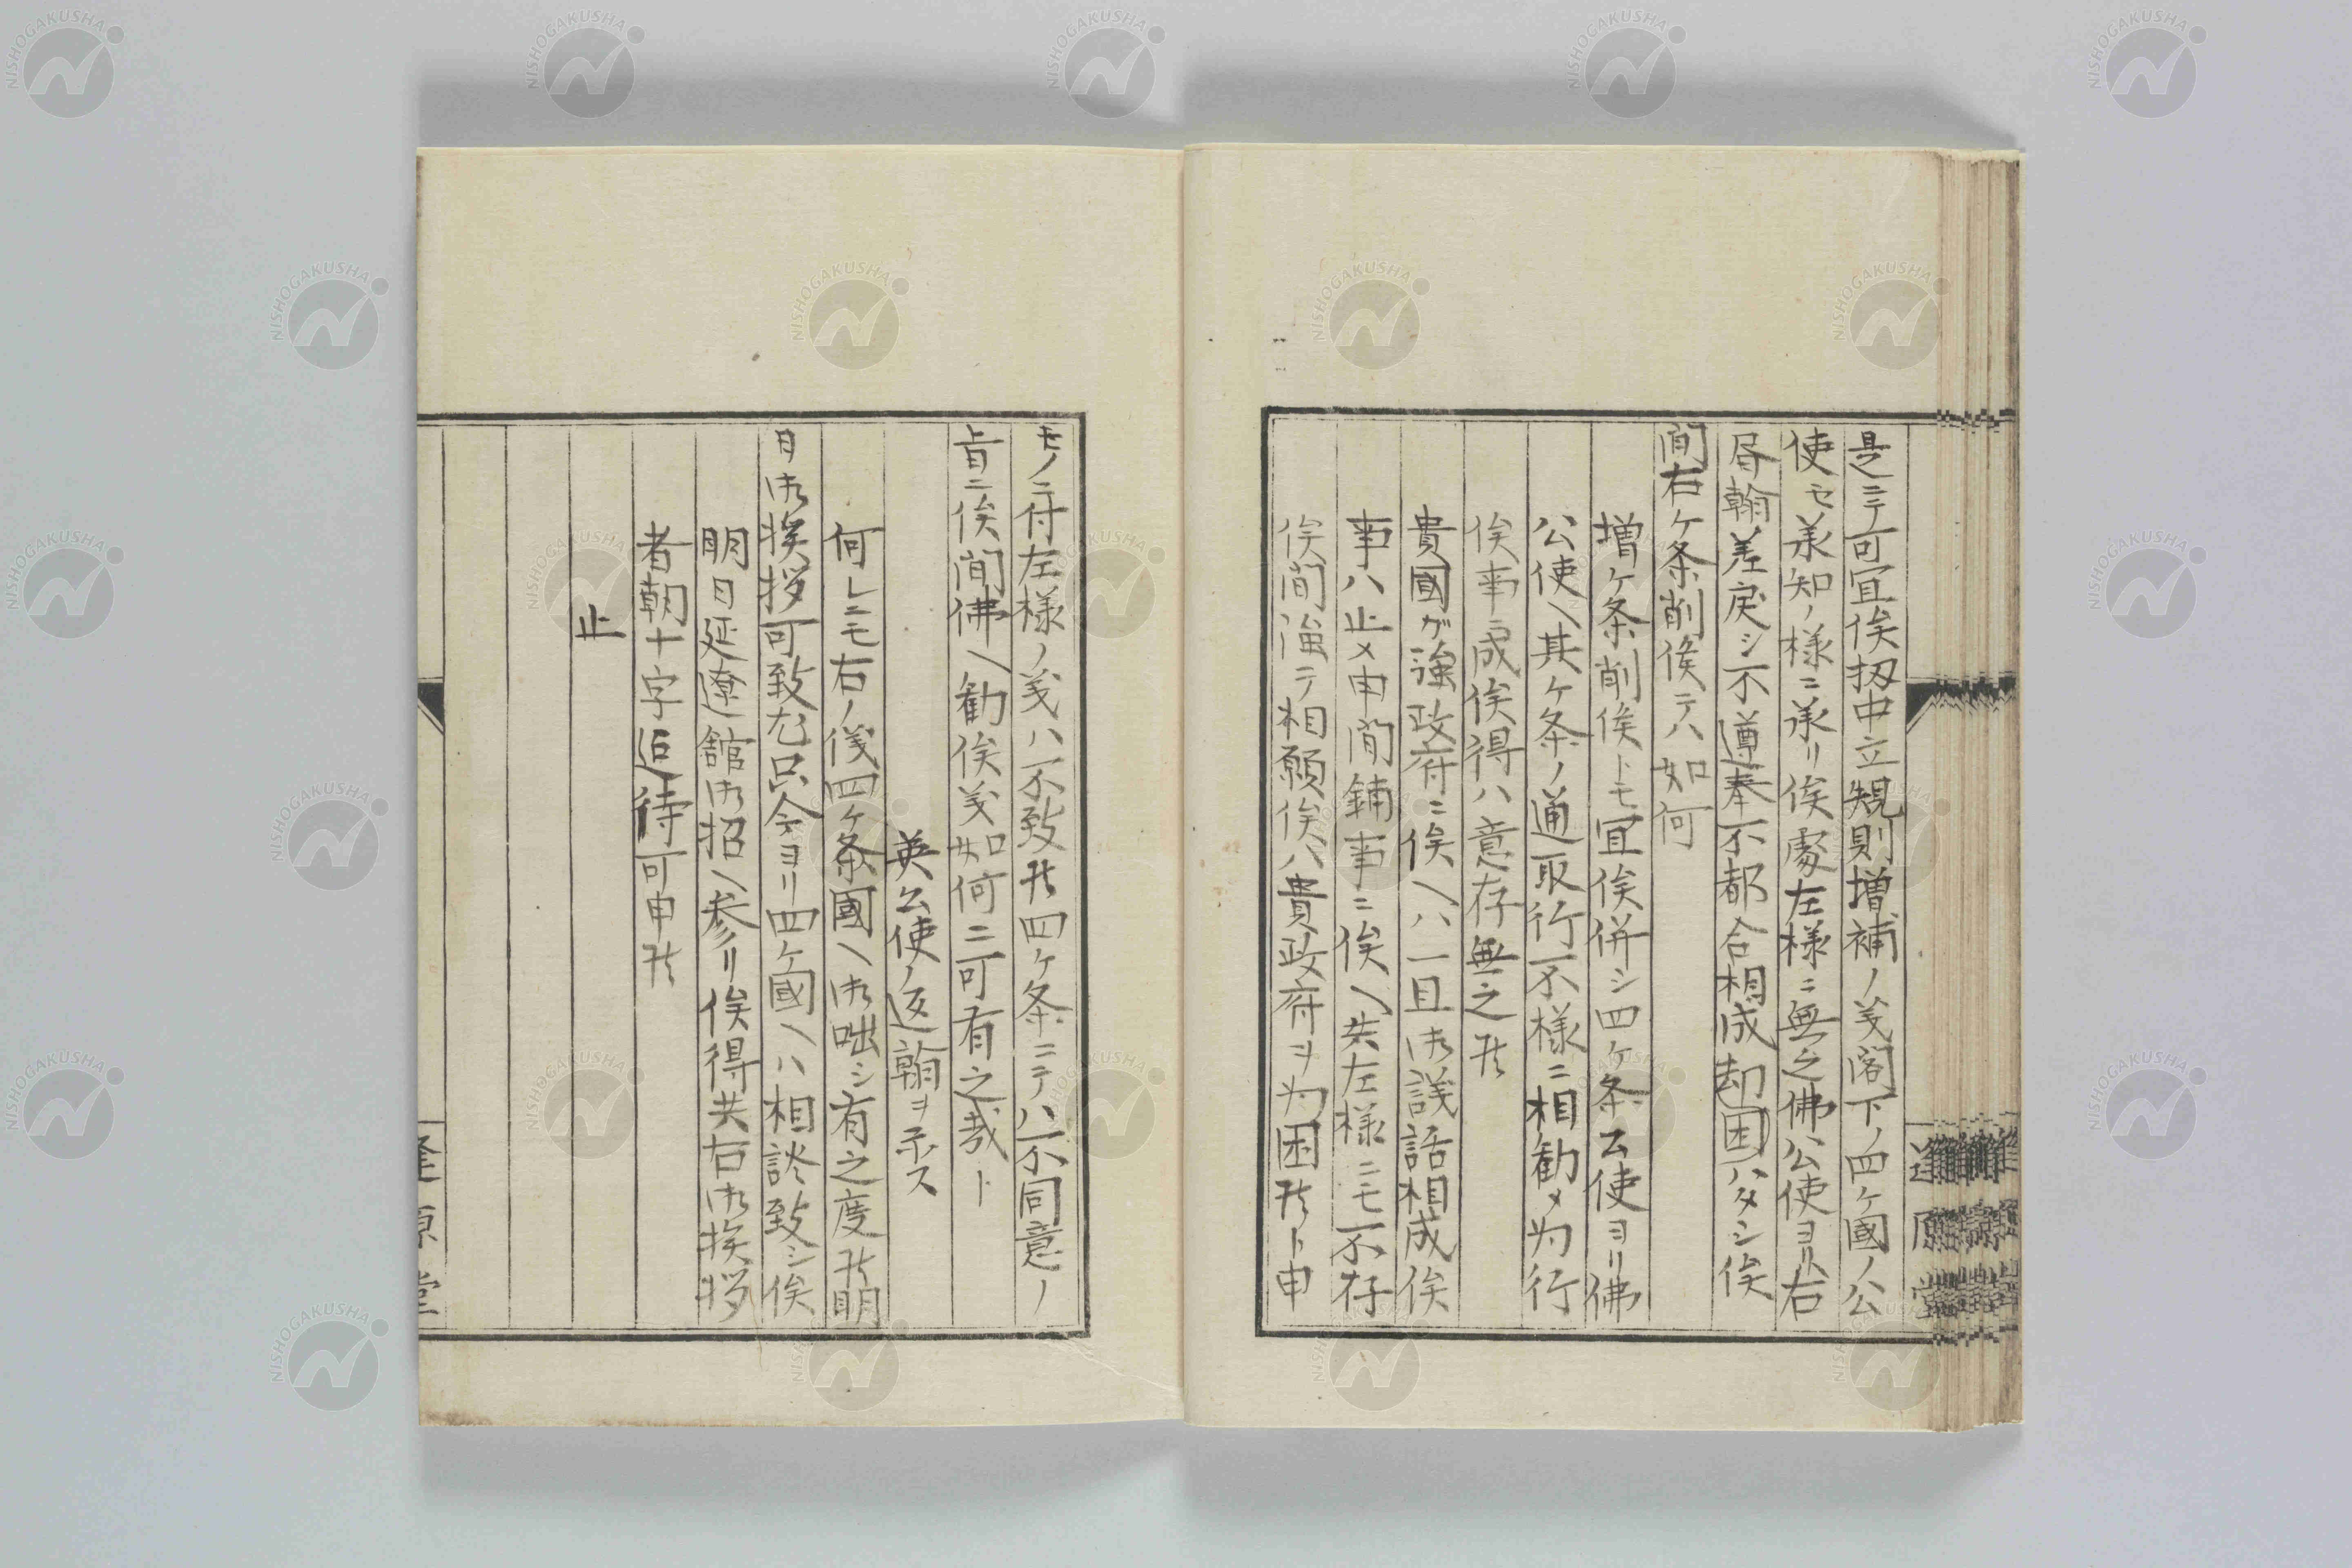 是ニテ可宜候扨中立規則増補ノ義閣下ノ四ケ國ノ公
使モ承知ノ様ニ承リ候處左様ニ無之佛公使ヨリ右
辱翰差戻シ不遵奉不都合相成却困ハタシ候
間右ケ条削候テハ如何
増ケ条削候トモ宜候併シ四ケ条公使ヨリ佛
公使ヘ其ケ条ノ通取行不様ニ相勧メ為行
候事ニ成候得ハ意存無之候
貴國ガ強政府ニ候ヘハ一旦御談話相成候
事ハ止メ申間鋪事ニ候ヘ共左様ニモ不存
候間強テ相願候ハ貴政府ヲ為困候ト申
モノニ付左様ノ義ハ不致候四ケ条ニテハ不同意ノ
旨ニ候間佛ヘ勧候義如何ニ可有之哉ト
英公使ノ返翰ヲ示ス
何レニモ右ノ儀四ケ条國ヘ御咄シ有之度候明
日御挨拶可致尤只今ヨリ四ケ國ヘハ相談致シ候
明日延遼舘御招ヘ参リ候得共右御挨拶
者朝十字迄待可申候
止
逢原堂